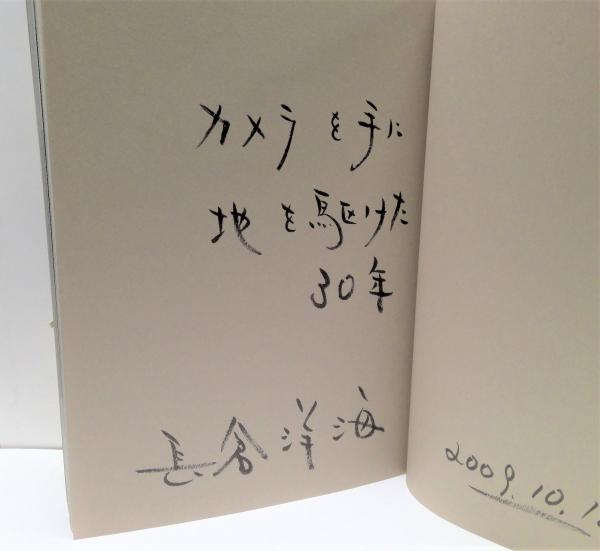 カメラを手に
地を駆けた
30年
長倉洋海
2009.10.1